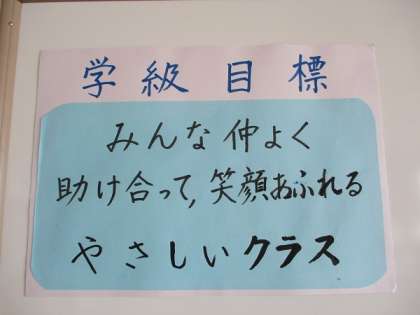 学級目標
みんな仲よく
助け合って,笑顔あふれる
やさしいクラス